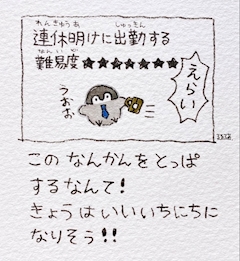 れんきゅうあ しゅっきん
連休明けに出勤する
なんいど
難易度★★★★★★★
えらい
うおお
このなんかんをとっぱ
するなんて!
きょうはいいいちにちに
なりそう!!